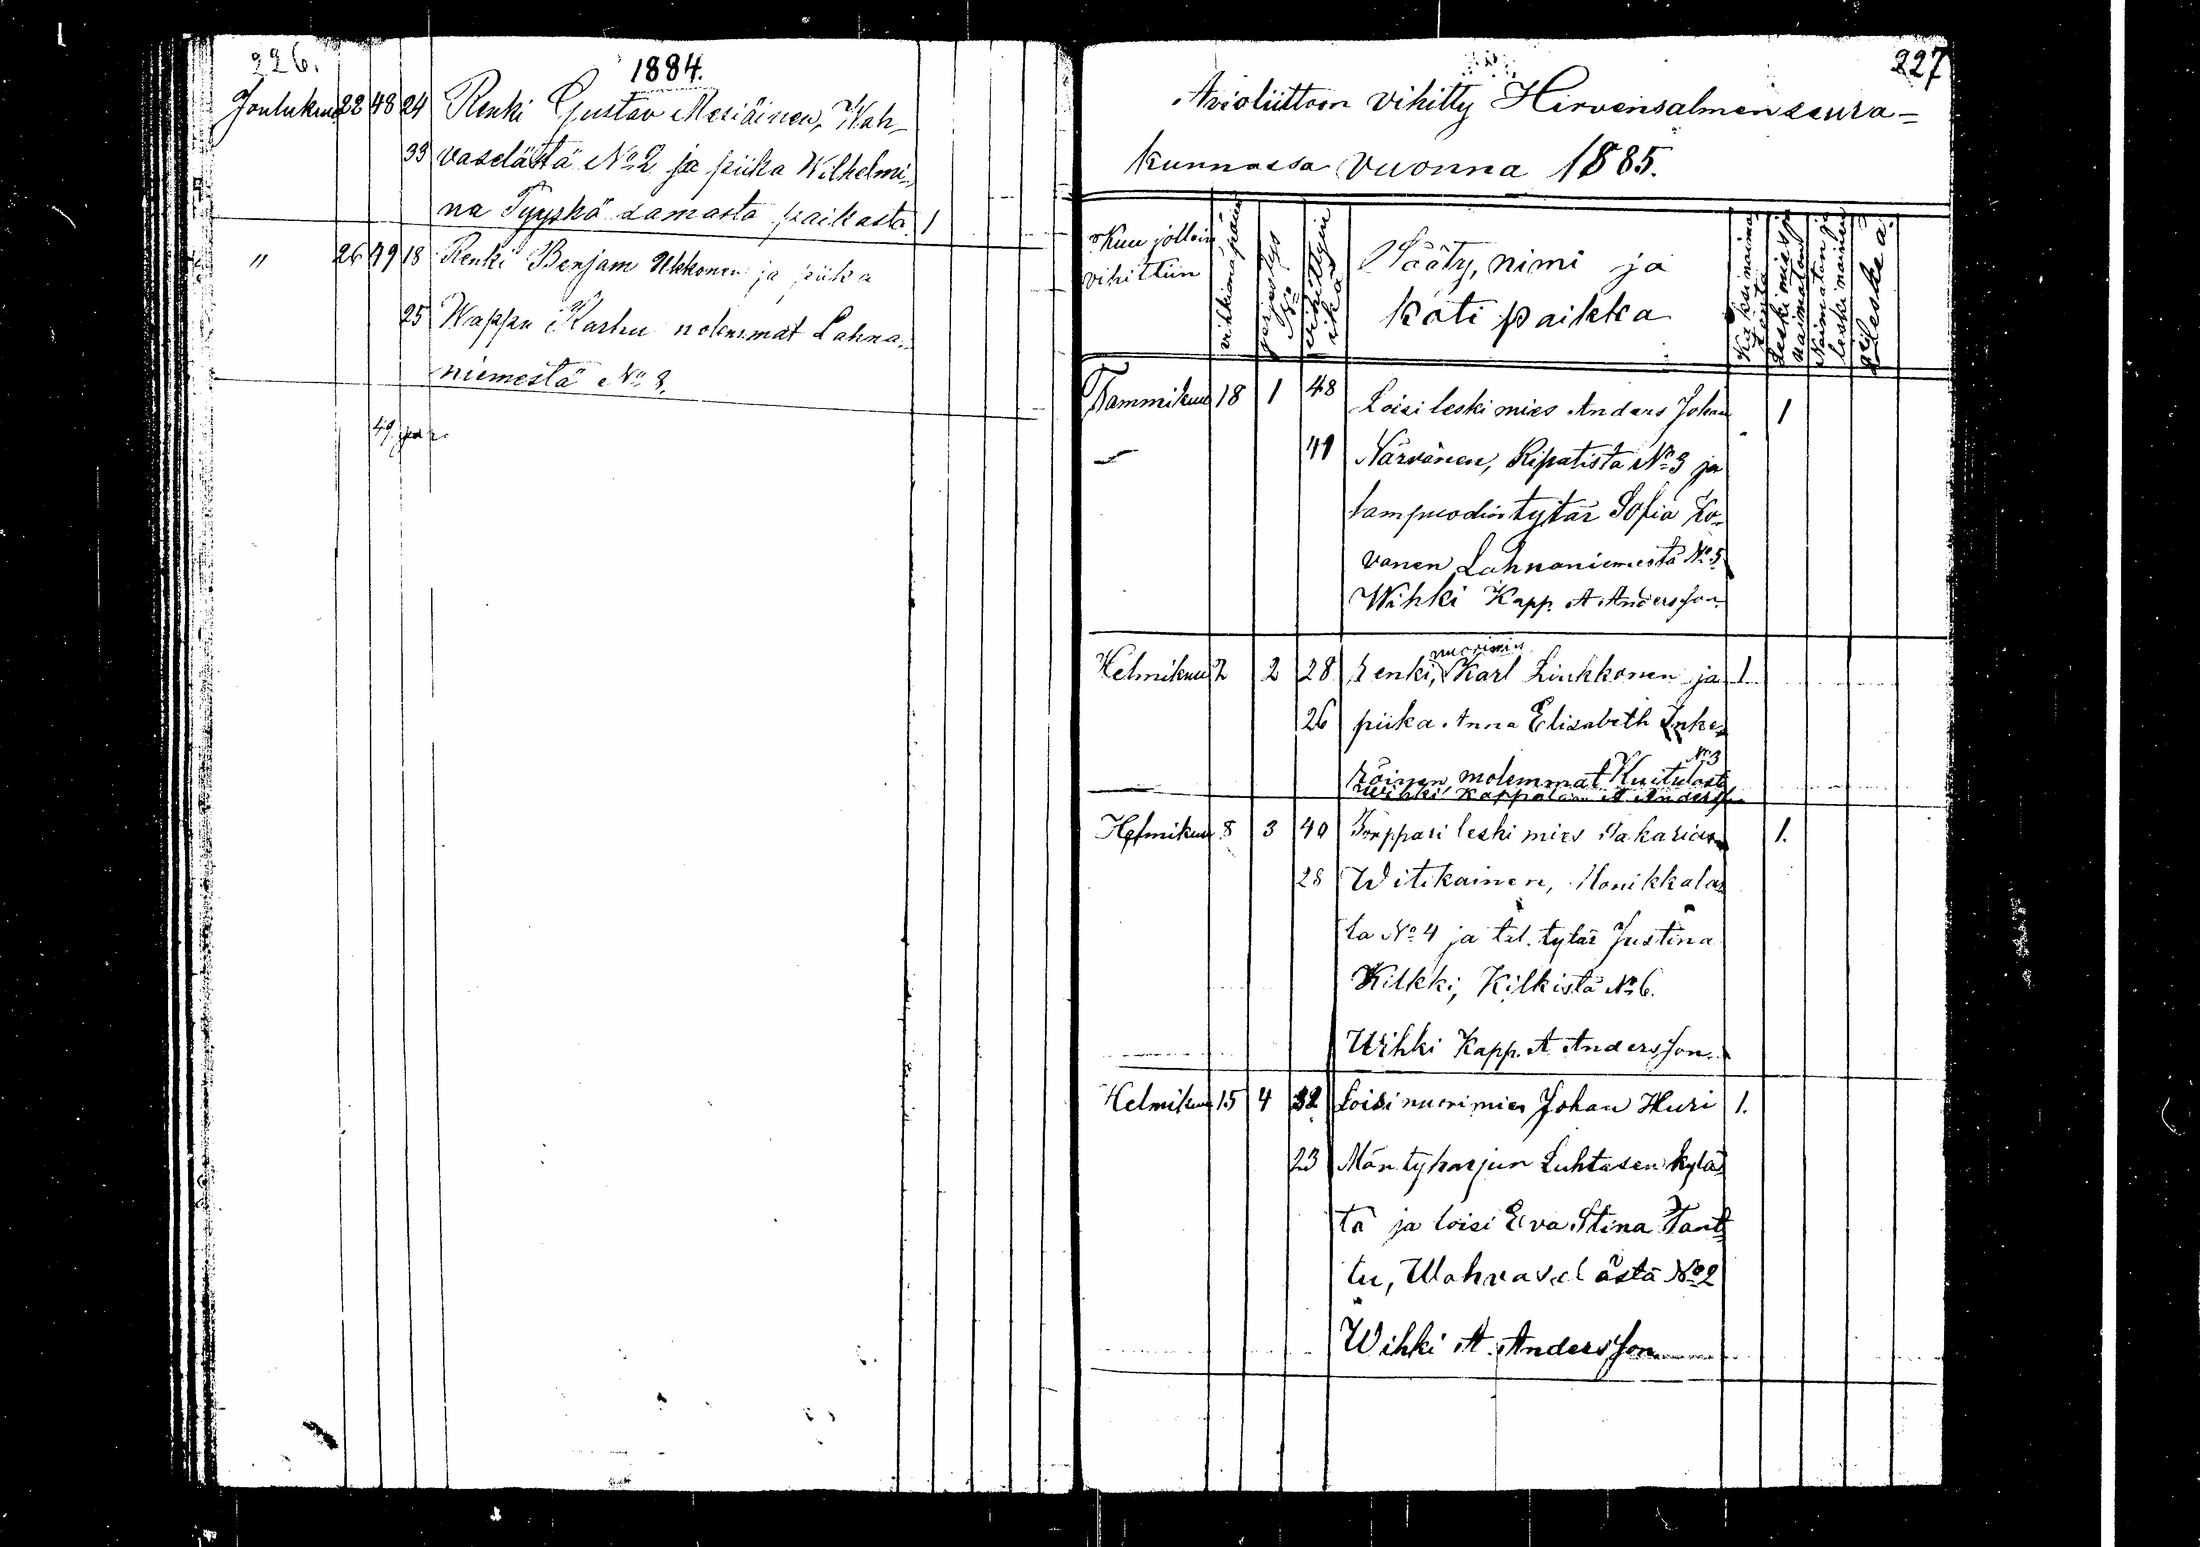 226.
1884.
Joulukuu 22 48 24 Renki Gustav Mesiäinen, Wah-
33 vaselästä No 2 ja piika Wilhelmi-
na Tyyskä samasta paikasta. 1
" 26 49 18 Renki Benjam Ukkonen ja piika
25 Wappu Karhu molemmat Lahna-
niemestä No 3.
49 par.
227
Avioliittoon vihitty Hirvensalmen seura-
kunnassa vuonna 1885.
Kuu jolloin
vihittiin
vihkimäpäivä
järjestys
No
vihittyin
ikä
Sääty, nimi ja
koti paikka
Kaksi naima-
tonta
Leski mies ja
naimaton
Naimaton ja
leski nainen
leskeä.
Tammikuu 18 1 48 Loisi leski mies Anders Johan 1
41 Närvänen, Ripatista No 3 ja
lampuodin tytär Sofia Ko-
vanen Lahnaniemestä No 5
Wihki Kapp. A Andersson.
nuorimies
Helmikuu 2 2 28 renki, Karl Liukkonen ja 1
26 piika Anna Elisabeth Inke-
No 3
röinen molemmat Kuitulasta
Wihki Kappalainen A Andersson
Helmikuu 8 3 40 Torppari leski mies Sakarias 1.
28 Witikainen, Monikkalas-
ta No 4 ja tal. tytär Justina
Kilkki, Kilkistä No 6.
Wihki Kapp. A Andersson.
Helmikuu 15 4 32 Loisi nuori mies Johan Huri 1.
23 Mäntyharjun Luhtasen kyläs-
tä ja loisi Eva Stina Tant-
tu, Wahvaselästä No 2
Wihki A. Andersson